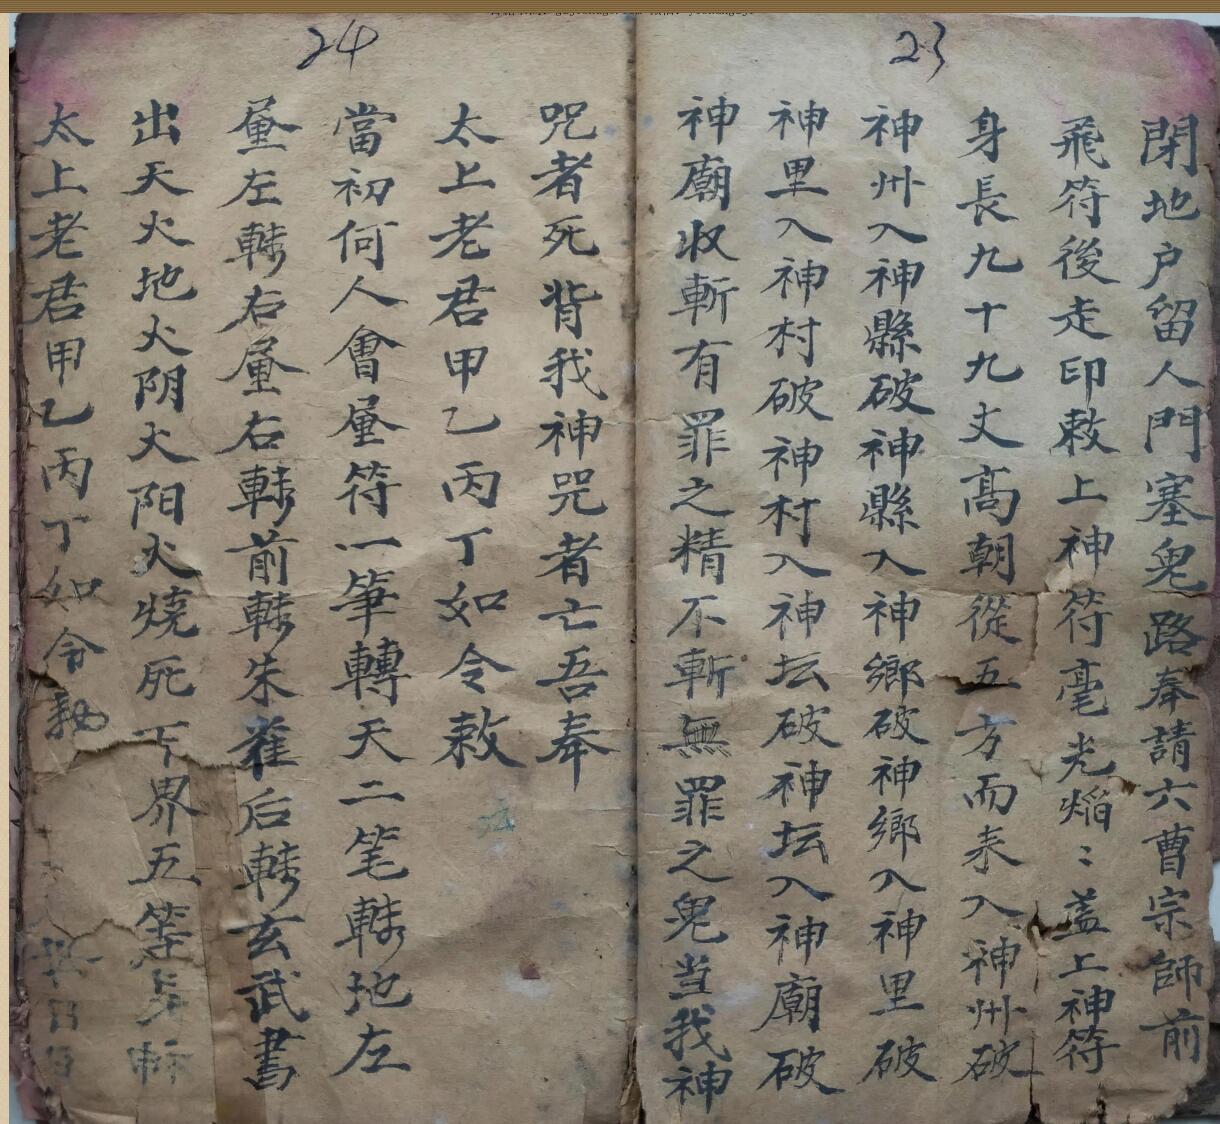 23
閉地户留人門塞鬼路奉請六曹宗師前
飛符後走印敕上神符毫光焰〻盖上神符
身長九十九丈高朝從五方而来入神州破
神州入神縣破神縣入神鄉破神鄉入神里破
神里入神村破神村入神坛破神坛入神廟破
神廟收斬有罪之精不斬無罪之鬼当我神
24
咒者死背我神咒者亡吾奉
太上老君甲乙丙丁如令敕
當初何人會畫符一筆轉天二笔轉地左
畫左轉右畫右轉前轉朱雀后轉玄武書
出天火地火阴火阳火燒死下界五等
太上老君甲乙丙丁如令敕